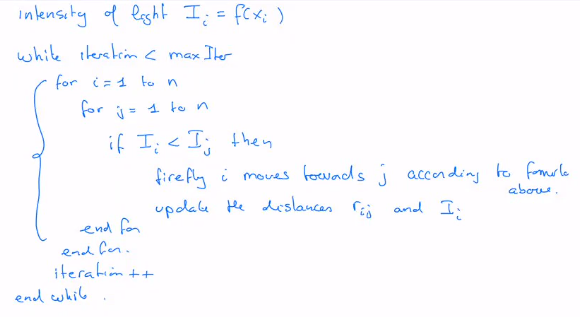 intensity of light I_i = f(x_i)
while iteration < maxIter
for i = 1 to n
for j = 1 to n
if I_i < I_j then
firefly i moves towards j according to formula
above.
update the distances r_ij and I_i
end for
end for.
iteration ++
end while.